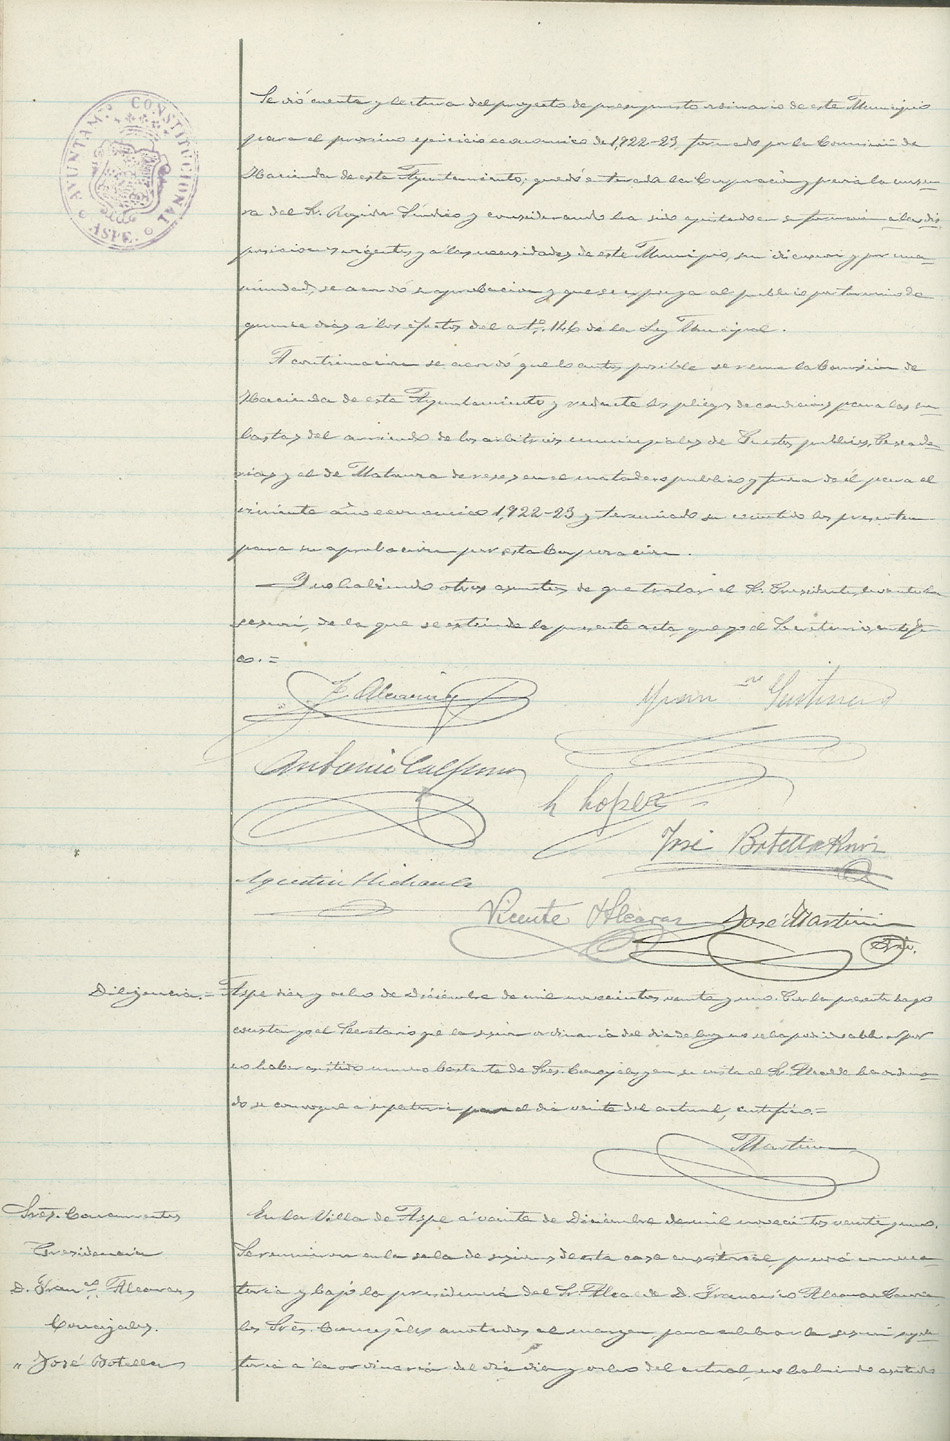 AYUNTAM. CONSTITUCIONAL
ASPE.
Se dió cuenta y lectura del proyecto de presupuesto ordinario de este Municipio
para el proximo ejercicio economico de 1922-23 formado por la Comisión de
Hacienda de este Ayuntamiento; quedó enterada la Corporación y previa la censu-
ra del Sr. Regidor Síndico y considerando ha sido ajustado en su formación a las dis-
posiciones vigentes y a las necesidades de este Municipio, sin discusion y por una-
nimidad, se acordó su aprobacion y que se exponga al publico por termino de
quince dias a los efectos del artº. 146 de la Ley Municipal.
A continuacion se acordó que lo antes posible se reuna la Comision de
Hacienda de este Ayuntamiento y redacte los pliegos de condiciones para las su-
bastas del arriendo de los arbitrios municipales de Puestos publicos, Pescade-
rias y el de Matanza de reses en el matadero publico y fuera de él para el
viniente año economico 1,922-23 y terminado su cometido los presenten
para su aprobacion por esta Corporacion.
Y no habiendo otros asuntos de que tratar el Sr. Presidente levantó la
sesion, de la que se extiende la presente acta que yo el Secretario certifi-
co.=
F. Alcaraz
Antonio Calpena
h López
José Botella
Agustin
Vicente Alcaraz
José Martinez
Srio.
Diligencia.=
Aspe diez y ocho de Diciembre de mil novecientos veinte y uno. Por la presente hago
constar yo el Secretario que la sesion ordinaria del dia de hoy no se ha podido celebrar por
no haber asistido numero bastante de Sres. Concejales y en su vista el Sr. Alcalde ha ordena-
do se convoque a supletoria para el dia veinte del actual, certifico.=
Martinez
Sres. Concurrentes
Presidencia
D. Franco. Alcaraz
Concejales.
" José Botella
En la Villa de Aspe a veinte de Diciembre de mil novecientos veinte y uno.
Se reunieron en la sala de sesiones de esta casa consistorial previa convoca-
toria y bajo la presidencia del Sr. Alcalde D. Francisco Alcaraz
los Sres. Concejales anotados al margen para celebrar la sesion suple-
toria a la ordinaria del dia diez y ocho del actual, no habiendo asistido